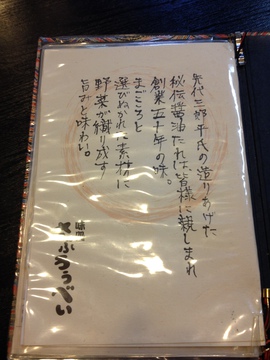 先代三郎平氏の造りあげた
秘伝醤油たれは皆様に親しまれ
創業五十年の味。
まごころと
選びぬかれた素材に
野菜が織り成す
旨みと味わい。
味処
さぶろうべい